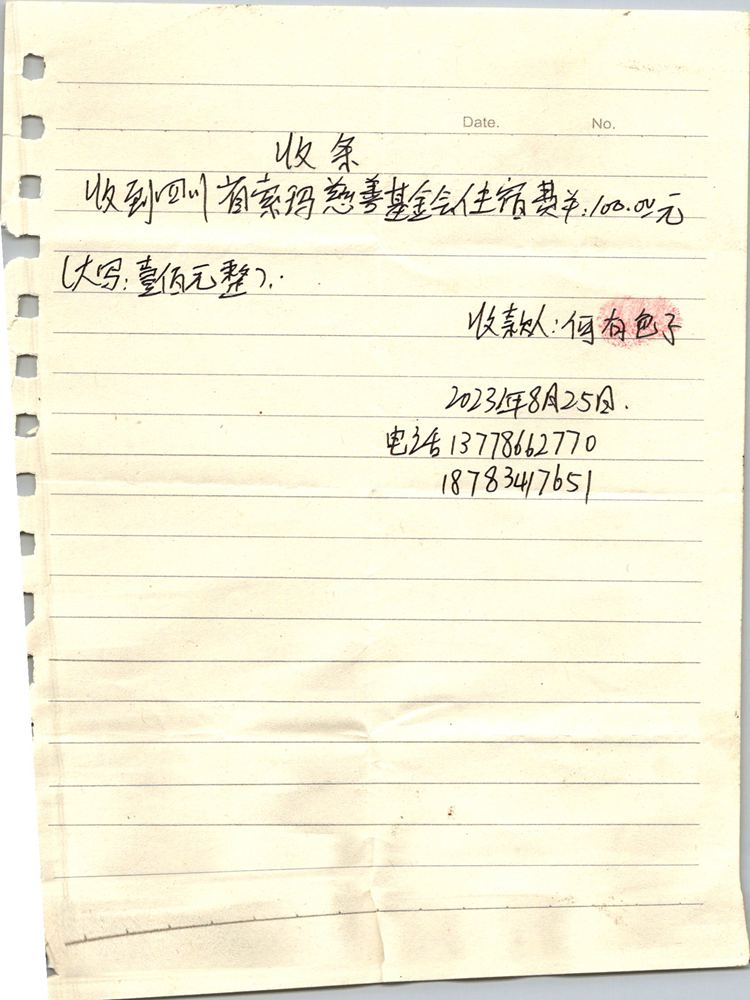 Date. No.
收条
收到四川省索玛慈善基金会住宿费￥:100.00元
(大写:壹佰元整)..
收款人:何有包子
2023年8月25日.
电话13778662770
18783417651